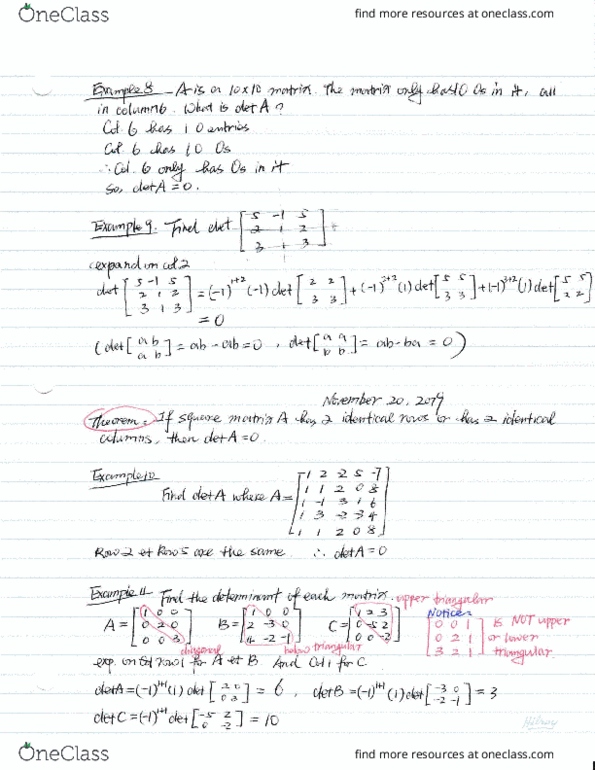 OneClass
find more resources at oneclass.com
Example 8 A is a 10x10 matrix. The matrix only has 10 0s in it, all
in column 6. What is det A ?
Col. 6 has 10 entries
Col. 6 has 10 0s
∴ Col. 6 only has 0s in it
So, det A = 0.
Example 9. Find det [5 -1 5
2 1 2
3 1 3]
expand on col 2
det [5 -1 5
2 1 2
3 1 3] = (-1)^1+2 (-1) det [2 2
3 3] + (-1)^2+2 (1) det [5 5
3 3] + (-1)^3+2 (1) det [5 5
2 2]
= 0
( det [a b
a b] = ab - ab = 0 , det [a a
b b] = ab - ba = 0 )
November 20, 2019
Theorem: If square matrix A has 2 identical rows or has 2 identical
columns, then det A = 0.
Example 10
Find det A where A = [1 2 -2 5 -7
1 1 2 0 8
1 -1 3 1 6
1 3 -2 -3 4
1 1 2 0 8]
Row 2 et Row 5 are the same. ∴ det A = 0
Example 11 Find the determinant of each matrix. upper triangular
A = [1 0 0
0 2 0
0 0 3] B = [1 0 0
2 -3 0
4 -2 -1] C = [1 2 3
0 -5 2
0 0 -2]
Notice:
[0 0 1
0 2 1
3 2 1] is NOT upper
or lower
triangular.
diagonal
triangular
exp. on Row 1 for A et B. And Col 1 for C
det A = (-1)^1+1 (1) det [2 0
0 3] = 6 , det B = (-1)^1+1 (1) det [-3 0
-2 -1] = 3
det C = (-1)^1+1 det [-5 2
0 -2] = 10
OneClass
find more resources at oneclass.com